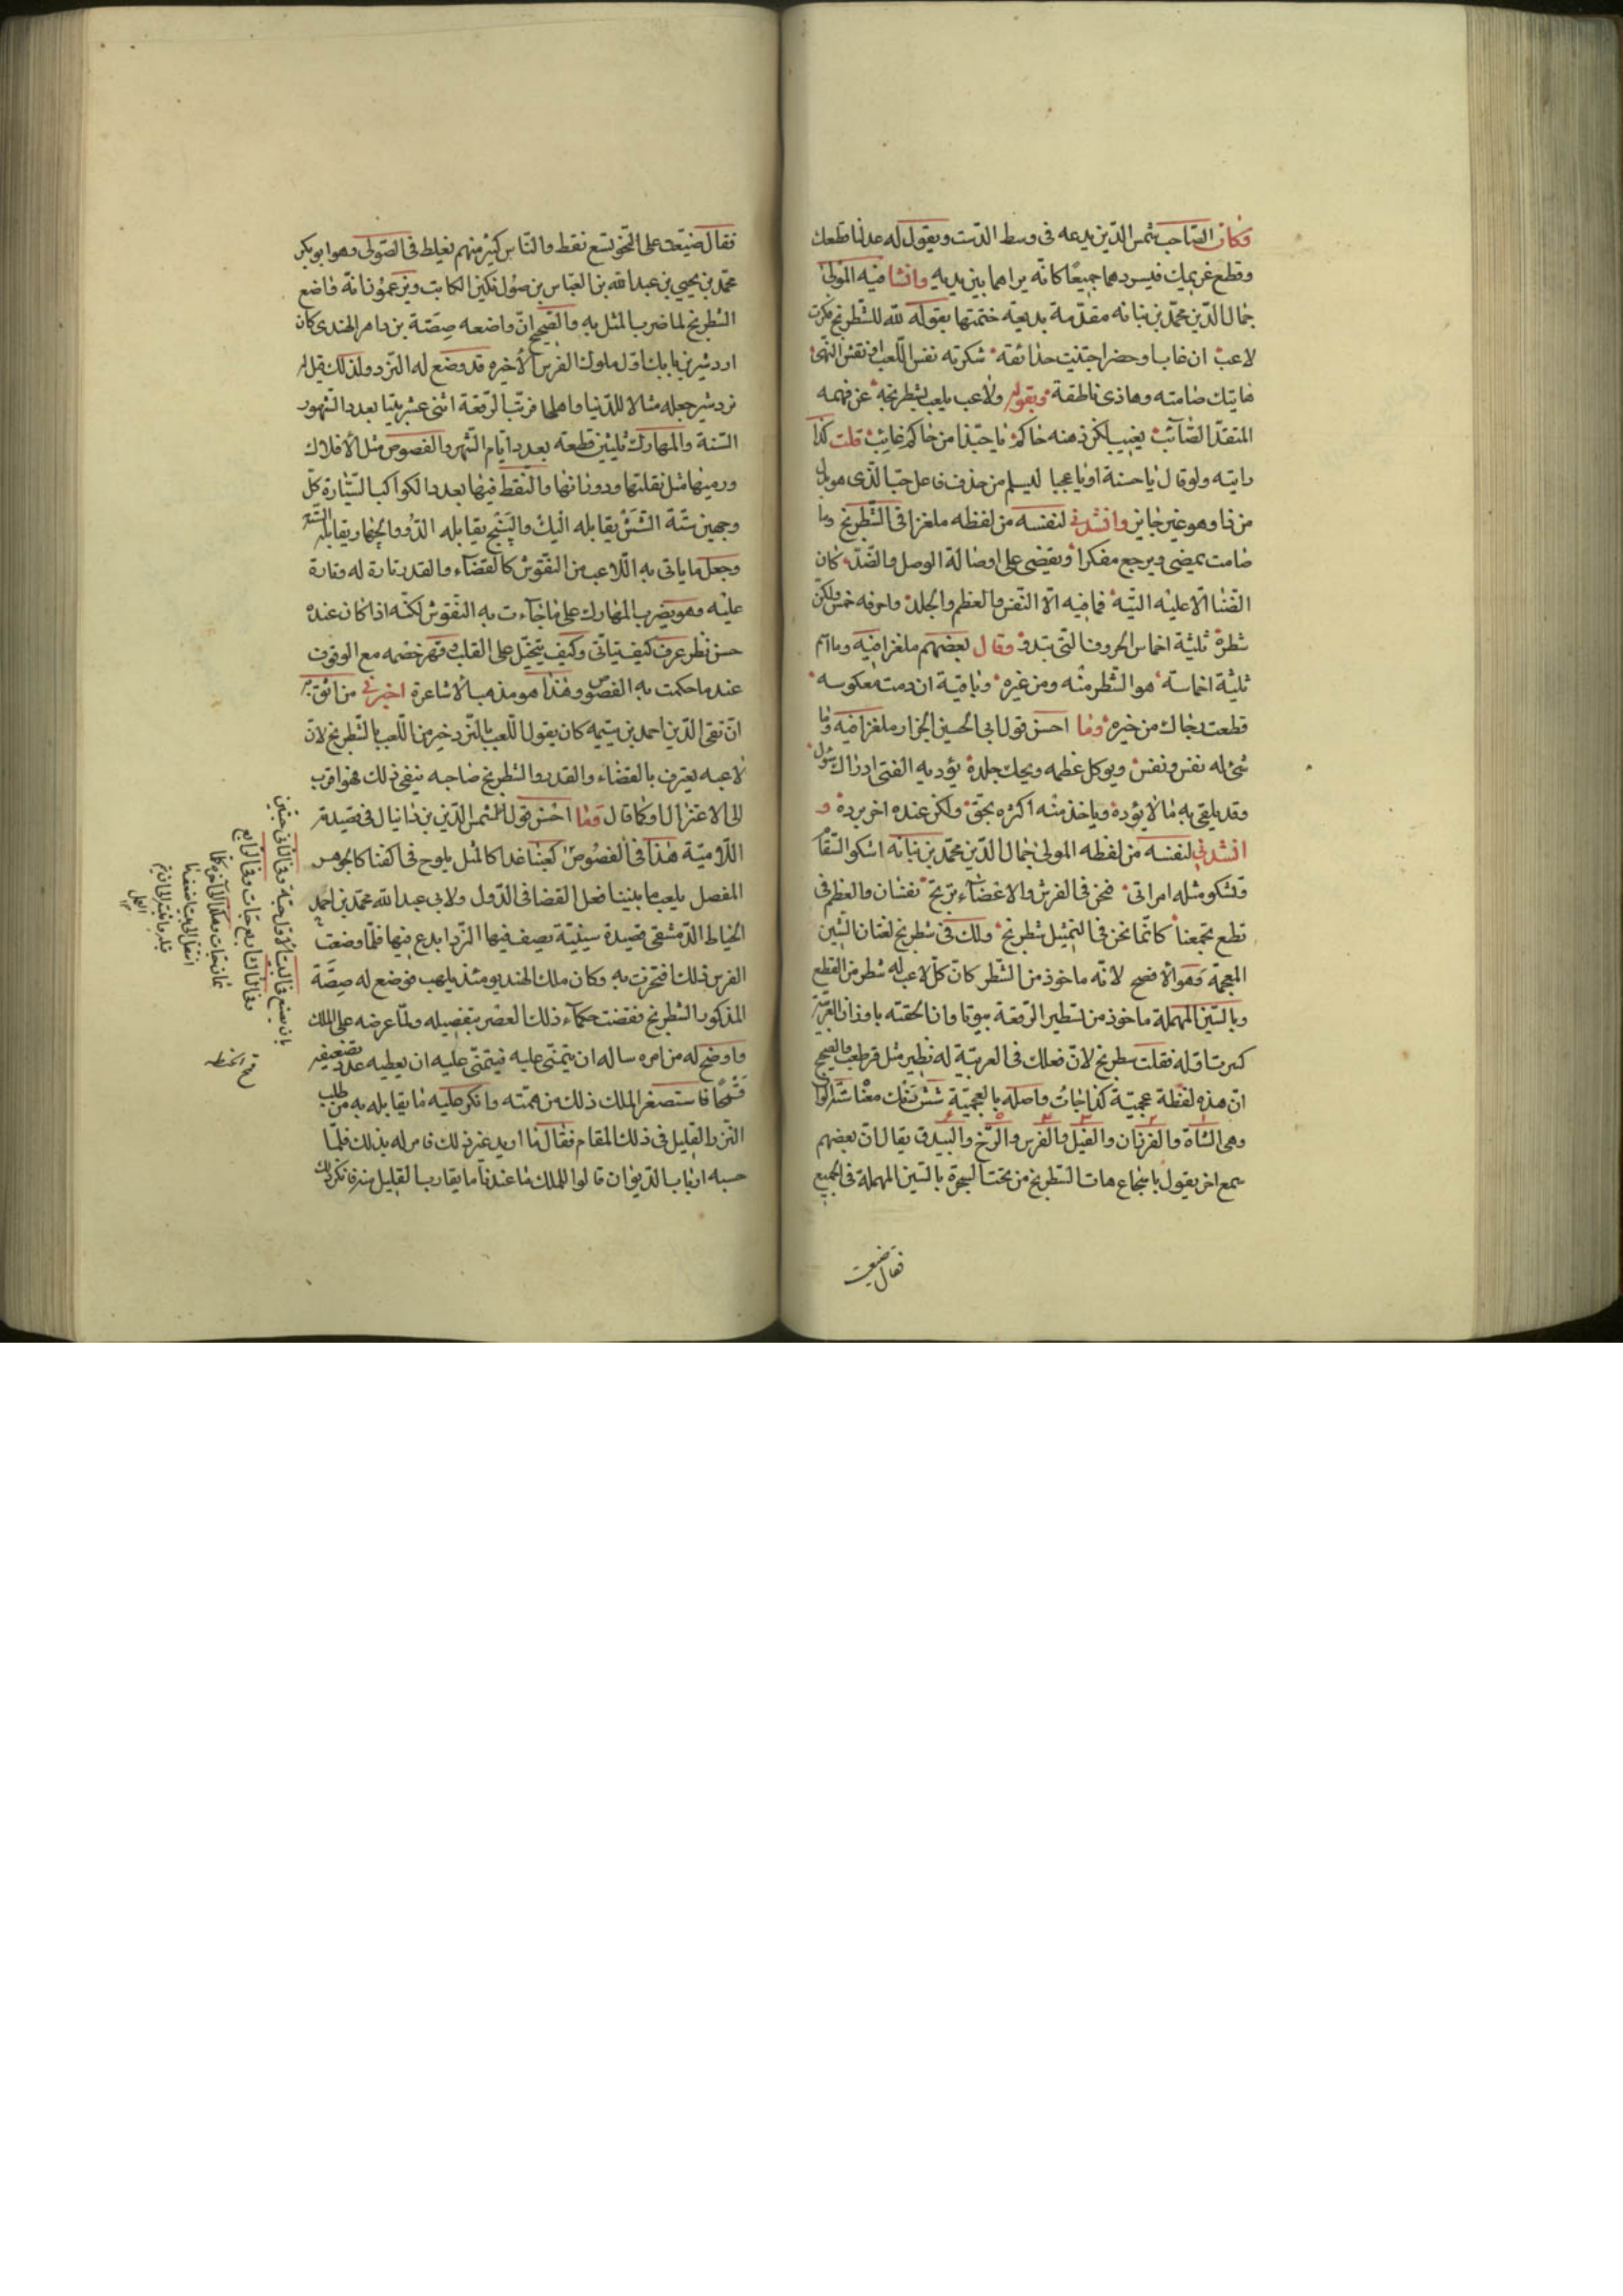 وكان الصاحب شمس الدين يدعه فى وسط الدست ويقول له عد لنا قطعك
وقطع غريمك فيسردهما جميعا كانه يراهما بين يديه وانشا فيه المولى
جمال الدين محمد بن نباته مقدمة بديعة ختمتها بقوله لله للشطرنج فكرت
لاعب ان غاب او حضر اجتنيت حدائقه شكرته نفس اللعب او نفس النهى
هاتيك صامته وهاذى ناطقة وبقوله ولاعب يلعب بشطرنجه عن فهمه
المتقد الصائب يغيب لكن ذهنه حاكم يا حبذا من حاكم غايب قلت كذا
رايته ولو قال يا حسنه او يا عجبا ليسلم من حذف فاعل حب الذى هو بدل
من ذا وهو غير جايز وانشدنى لنفسه من لفظه ملغزا فى الشطرنج وما
صامت يمضى ويرجع مفكرا ويقضى على اوصاله الوصل والصد كان
الضنا الا عليه اليته فما فيه الا النفس والعظم والجلد واحرفه خمس ولكن
شطره ثلثة اخماس الحروف التى تبدو وقال بعضهم ملغزا فيه وما اسم
ثلثة اخماسه هو الشطر منه ومن غيره وباقية ان دمت معكوسه
قطعت رجاك من خيره وما احسن قول ابى الحسين الجزار ملغزا فيه وما
شئ له نفس ونفس ويوكل عظمه ويحك جلده يؤديه الفتى ادراك سؤل
وقد يلقى به ما لا يؤده وياخذ منه اكثره بحق ولكن عنده اخر برده و
انشدنى لنفسه من لفظه المولى جمال الدين محمد بن نباته اشكو السقام
وتشكو مثله امراتى فنحن فى الفرش والاعضاء ترتج نفسان والعظم فى
قطع يجمعنا كانما نحن فى التمثيل شطرنج ولك فى شطرنج لغتان الشين
المعجمة وهو الافصح لانه ماخوذ من الشطر كان كل لاعب له شطر من القطع
وبالسين المهملة ماخوذ من تسطير الرقعة بيوتا وان الحقته باوزان العربية
كسرت اوله فقلت سطرنج لان فعلل فى العربية له نظير مثل قرطعب والصحيح
ان هذه لفظة عجمية كذا جات واصله بالعجمية شش رنك معنا ستة الوان
وهى الشاة والفرزان والفيل والفرس والرخ والبيدق يقال ان بعضهم
سمع اخر يقول يا شجاع هات الشطرنج من تحت الشجرة بالسين المهملة فى الجميع
فقال ضيقت
فقال ضيقت على النحو تسع نقط والناس كثير منهم يغلط فى الصولى وهو ابو بكر
محمد بن يحيى بن عبد الله بن العباس بن صول تكين الكاتب ويزعمون انه واضع
الشطرنج لما ضرب المثل به والصحيح ان واضعه صصة بن داهر الهندى كان
اردشير بن بابك اول ملوك الفرس الاخيره قد وضع له النرد ولذلك قيل له
نردشير جعله مثالا للدنيا واهلها فرتب الرقعة اثنى عشر بيتا بعدد الشهور
السنة والمهارك ثلثين قطعه بعدد ايام الشهر والفصوص مثل الافلاك
ورميها مثل تقلبها ودورانها والنقط فيها بعدد الكواكب السيارة كل
وجهين سبة الشش يقابله اليك والپنج يقابله الدو والجهار يقابله السه
وجعل ما ياتى به اللاعب من النقوش كالقضاء والقدر تارة له وتارة
عليه وهو يضرب المهارك على ما جاءت به النقوش لكنه اذا كان عنده
حسن نظر عرف كيف يتاتى وكيف يتخيل على القلب وقهر خصمه مع الوقوف
عند ما حكمت به الفصوص وهذا هو مذهب الاشاعرة اخبرنى من اثق به
ان تقى الدين احمد بن تيميه كان يقول اللعب بالنرد خير من اللعب بالشطرنج لان
لاعبه يعترف بالقضاء والقدر والشطرنج صاحبه ينفى ذلك فهو اقرب
الى الاعتزال او كما قال وما احسن قول شمس الدين بن دانيال فى قصيدته
اللامية هذا فى الفصوص كعبنا غدا كالمثل يلوح فى اكفنا كالجوهر
المفصل يلعب ما بيننا فعل القضا فى الدول ولابى عبد الله محمد بن احمد
الخياط الدمشقى قصيدة سينية يصف فيها النرد ابدع فيها فلما وضعت
الفرس ذلك افتخرت به وكان ملك الهند يومئذ بلهب فوضع له صصة
المذكور الشطرنج فقضت حكماء ذلك العصر بتفضيله ولما عرضه على الملك
واوضح له من امره ساله ان يتمنى عليه فيتمنى عليه ان يعطيه عدد تضعيفه
قمحا فاستصغر الملك ذلك من همته وانكر عليه ما يقابله به من طلب
النزر القليل فى ذلك المقام فقال ما اريد غير ذلك فامر له بذلك فلما
حسبه ارباب الديوان قالوا للملك ما عندنا ما يقارب القليل منه فانكر ذلك
بان يضع فى البيت الاول حبة وفى الثانى حبتين
وفى الثالث اربع حبات وفى الرابع
ثمان حبات وهكذا الى اخره كلما
انتقل الى بيت ضعف ما
قبله
قمح الحنطه